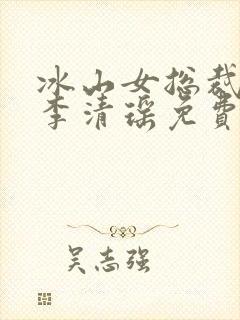 冰山女总裁
李清瑶免费
吴志强